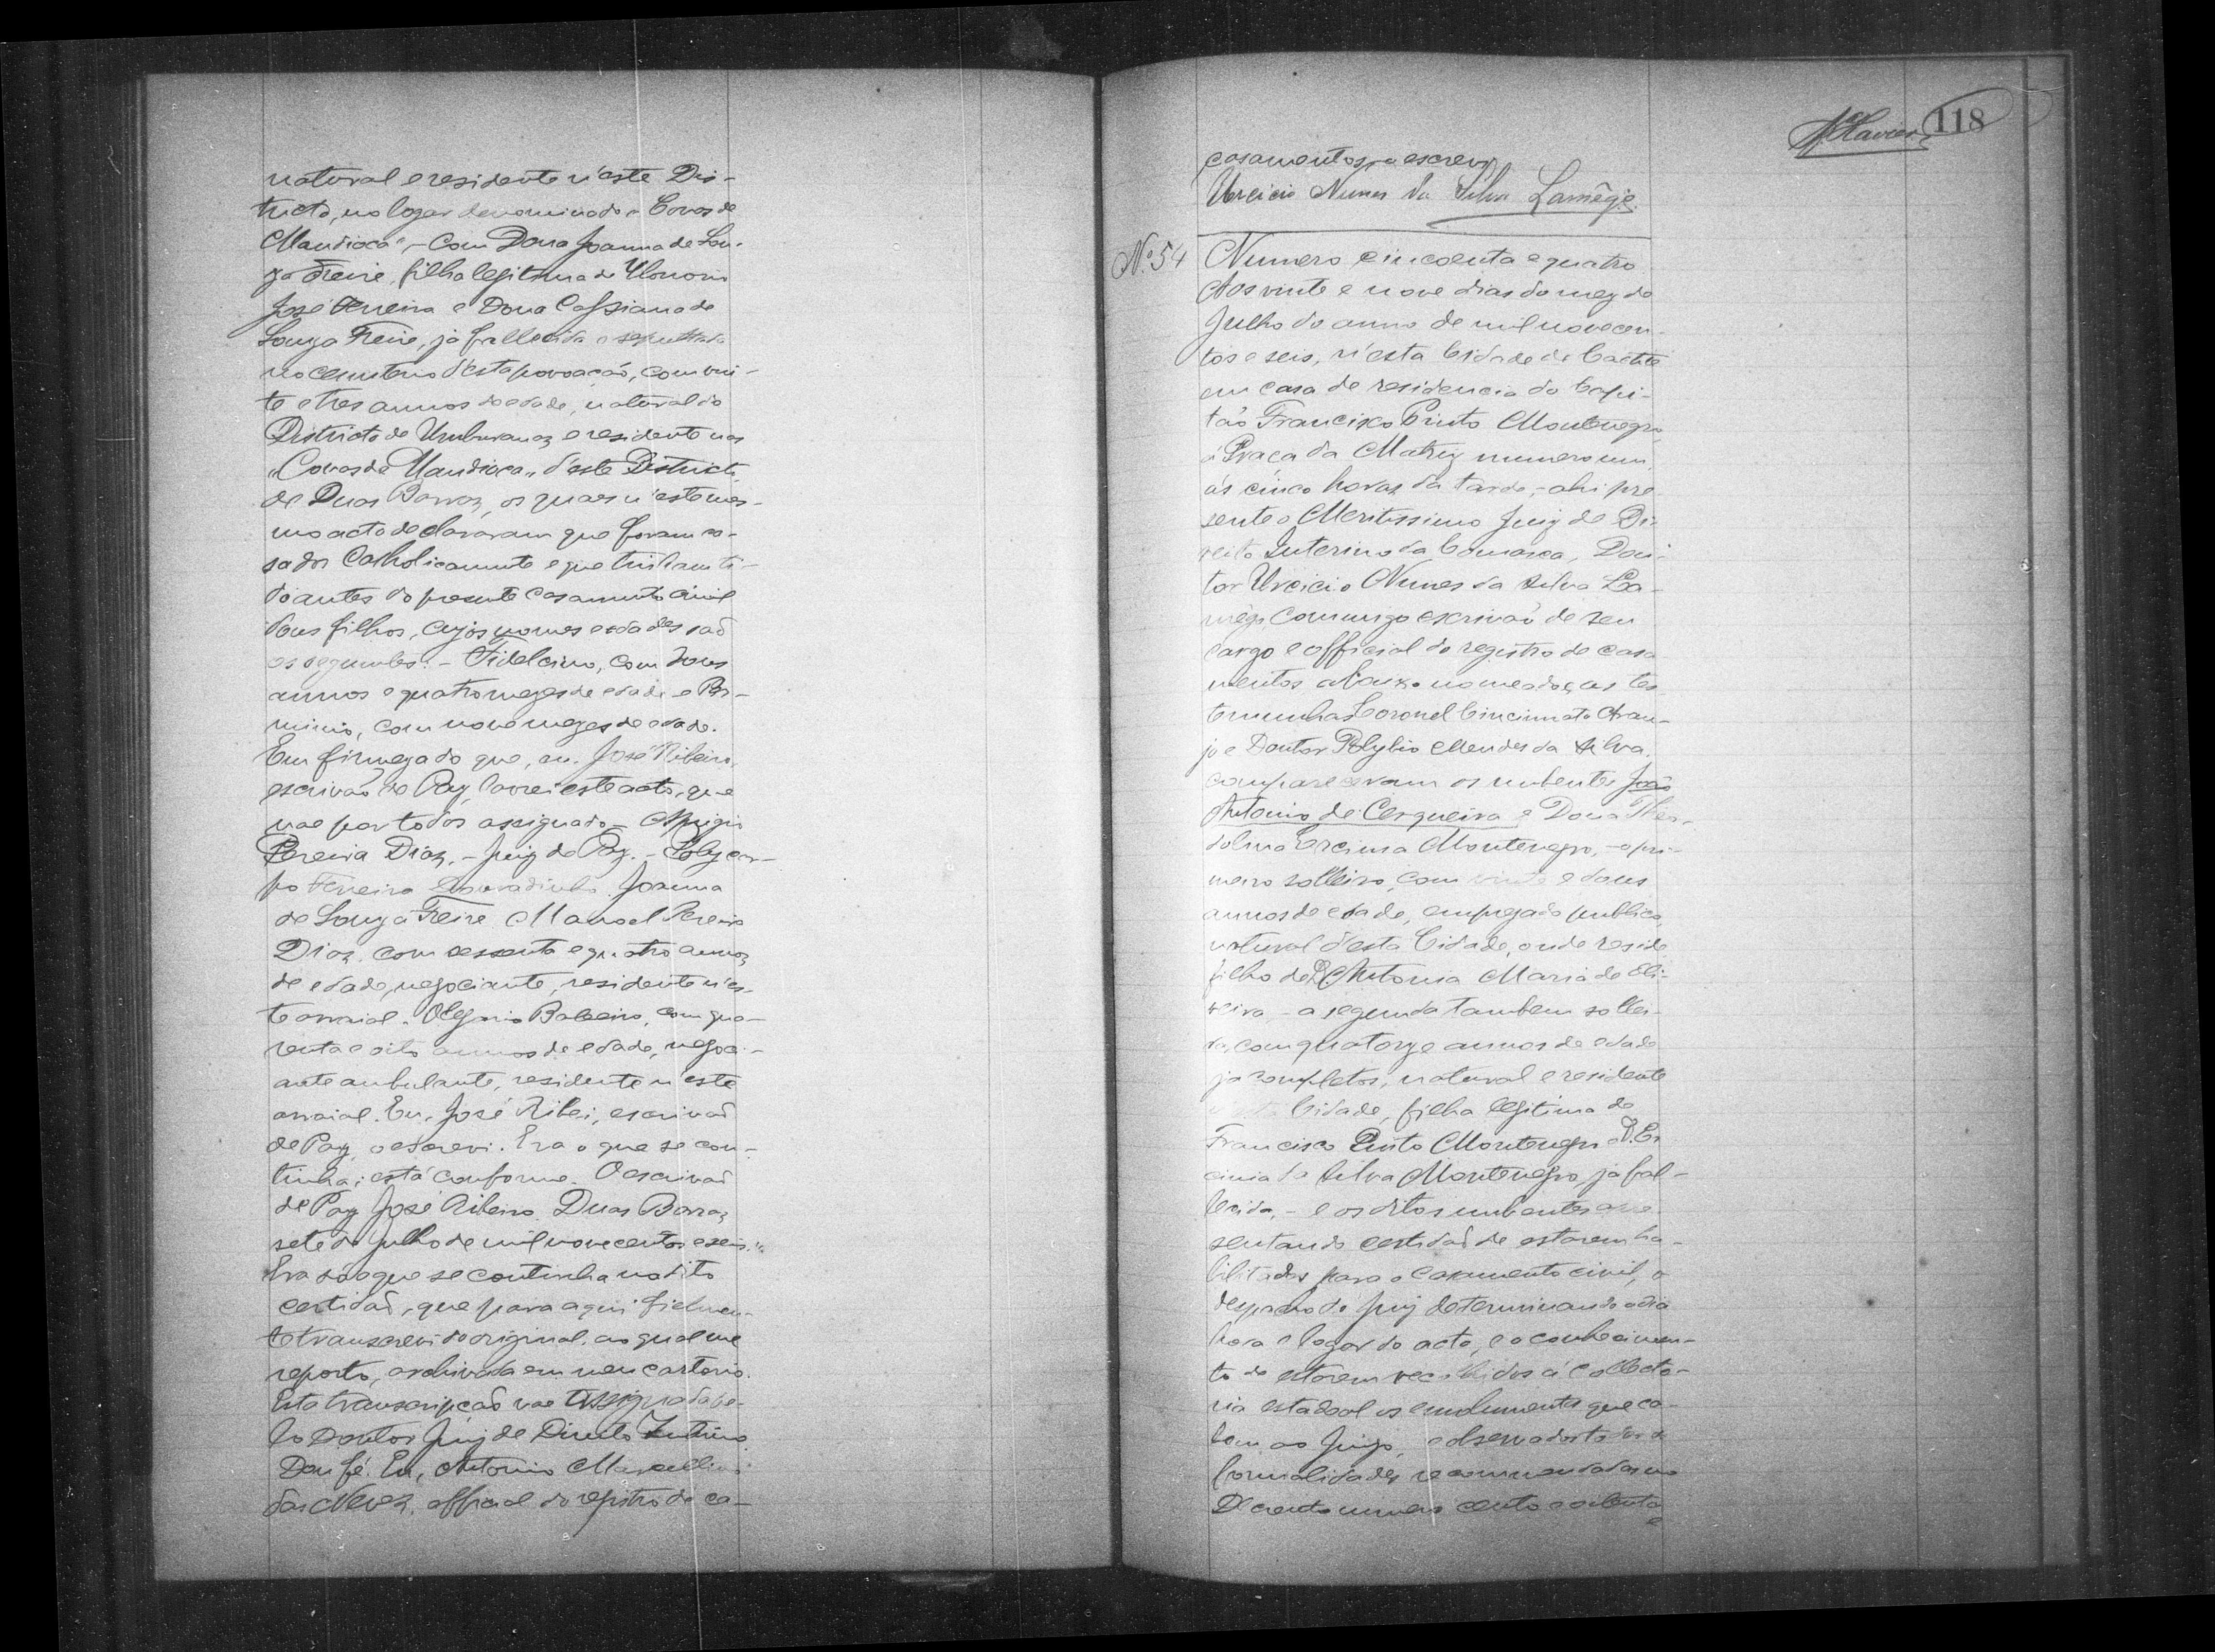 natural e residente n'este Dis-
tricto, no logar denominado "Covas de
Mandioca", - Com Dona Joanna de Sou-
za Freire, filha legitima de Honorio
José Ferreira e Dona Cassiana de
Souza Freire, já fallecida e sepultada
no cemiterio d'esta povoação, com vin-
te e tres annos de edade, natural do
Districto de Umburanas e residente nas
"Covas de Mandioca", d'este Districto
de Duas Barras, os quaes n'este mes-
mo acto declararam que foram ca-
sados Catholicamente e que tinham ti-
do antes do presente casamento civil
dous filhos, cujos nomes e edades são
os seguintes: - Fidelcino, com dous
annos e quatro mezes de edade e
com nove mezes de edade.
Em firmeza do que, eu, José Ribeiro,
escrivão de Paz, lavrei este acto, que
vae por todos assignado -
Pereira Dias, - Juiz de Paz. - Polycar-
po Ferreira Joanna
de Souza Freire Manoel Pereira
Dias, com sessenta e quatro annos
de edade, negociante, residente n'es-
te arraial. Olegario Baleeiro, com qua-
renta e oito annos de edade, negoci-
ante ambulante, residente n'este
arraial. Eu, José Ribei, escrivão
de Paz, o escrevi. Era o que se con-
tinha; está conforme. O escrivão
de Paz José Ribeiro. Duas Barras,
sete de Julho de mil novecentos e seis."
Era só o que se continha na dita
certidão, que para aqui fielmen-
te transcrevi do original, ao qual me
reporto, archivada em meu cartorio.
Esta transcripção vae assignada pe-
lo Doutor Juiz de Direito Interino.
Dou fé. Eu, Antonio Marcellino
das Neves, official do registro de ca-
118
casamentos, o escrevi.
Urcicio Nunes da Silva Lamêgo.
Nº 54
Numero cincoenta e quatro
Aos vinte e nove dias do mez de
Julho do anno de mil novecen-
tos e seis, n'esta Cidade de Caetité
em casa de residencia do Capi-
tão Francisco Pinto Montenegro,
á Praça da Matriz numero um,
ás cinco horas da tarde, - ahi pre
sente o Meritissimo Juiz de Di-
reito Interino da Comarca, Dou-
tor Urcicio Nunes da Silva La-
mêgo, commigo escrivão de seu
cargo e official do registro de casa
mentos abaixo nomeado, e as tes
temunhas Coronel Cincinnato Arau-
jo e Doutor Polybio Mendes da Silva,
compareceram os nubentes João
Antonio de Cerqueira e Dona
Ercinia Montenegro, - o pri-
meiro solteiro, com vinte e dous
annos de edade, empregado publico,
natural d'esta Cidade, onde reside,
filho de D. Antonia Maria de Oli-
veira, - a segunda tambem soltei-
ra, com quatorze annos de edade
já completos, natural e residente
Cidade, filha legitima de
Francisco Pinto Montenegro e D. Er
cinia da Silva Montenegro, já fal-
lecida, - e os ditos nubentes apre
sentando certidão de estarem ha-
bilitados para o casamento civil, o
despacho do Juiz determinando o dia
hora e logar do acto, e o conhecimen-
to de estarem recolhidos á Collecto-
ria estadoal os emolumentos que ca-
bem ao Juizo, e observadas todas as
formalidades recommendadas no
Decreto numero cento e oitenta
e